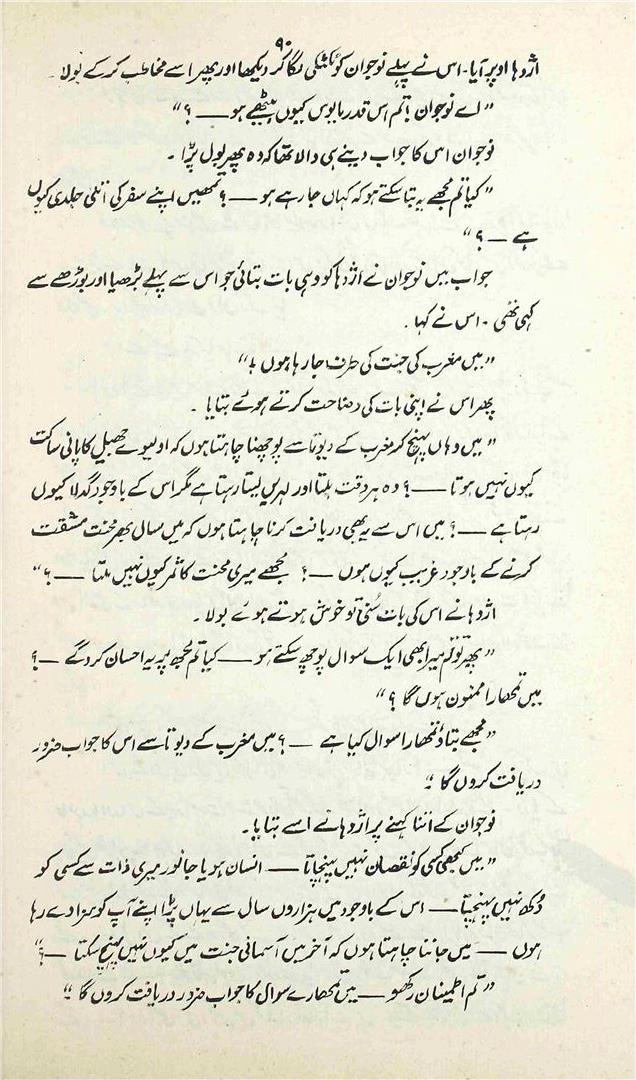 ۹۰
اژدہا اوپر آیا۔ اس نے پہلے نوجوان کو ٹکٹکی لگا کر دیکھا اور پھر اسے مخاطب کر کے بولا۔
”اے نوجوان! تم اس قدر مایوس کیوں بیٹھے ہو —— ؟“
نوجوان اس کا جواب دینے ہی والا تھا کہ وہ پھر بول پڑا۔
”کیا تم مجھے یہ بتا سکتے ہو کہ کہاں جا رہے ہو —— ؟ تمھیں اپنے سفر کی اتنی جلدی کیوں
ہے —— ؟“
جواب میں نوجوان نے اژدہا کو وہی بات بتائی جو اس سے پہلے بڑھیا اور بوڑھے سے
کہی تھی۔ اس نے کہا۔
”میں مغرب کی جنت کی طرف جا رہا ہوں !“
پھر اس نے اپنی بات کی وضاحت کرتے ہوئے بتایا۔
”میں وہاں پہنچ کر مغرب کے دیوتا سے پوچھنا چاہتا ہوں کہ اولیوے جھیل کا پانی ساکت
کیوں نہیں ہوتا —— ؟ وہ ہر وقت ہلتا اور لہریں لیتا رہتا ہے مگر اس کے باوجود گدلا کیوں
رہتا ہے —— ؟ میں اس سے یہ بھی دریافت کرنا چاہتا ہوں کہ میں سال بھر محنت مشقت
کرنے کے باوجود غریب کیوں ہوں —— ؟ مجھے میری محنت کا ثمر کیوں نہیں ملتا —— ؟“
اژدہا نے اس کی بات سُنی تو خوش ہوتے ہوئے بولا۔
”پھر تو تم میرا بھی ایک سوال پوچھ سکتے ہو —— کیا تم مجھ پر یہ احسان کرو گے —— ؟
میں تمھارا ممنون ہوں گا ؟“
”مجھے بتاؤ تمھارا سوال کیا ہے —— ؟ میں مغرب کے دیوتا سے اس کا جواب ضرور
دریافت کروں گا۔“
نوجوان کے اتنا کہنے پر اژدہا نے اسے بتایا۔
”میں کبھی کسی کو نقصان نہیں پہنچاتا —— انسان ہو یا جانور میری ذات سے کسی کو
دُکھ نہیں پہنچتا —— اس کے باوجود میں ہزاروں سال سے یہاں پڑا اپنے آپ کو سزا دے رہا
ہوں —— میں جاننا چاہتا ہوں کہ آخر میں آسمانی جنت میں کیوں نہیں پہنچ سکتا —— ؟“
”تم اطمینان رکھو —— میں تمھارے سوال کا جواب ضرور دریافت کروں گا۔“